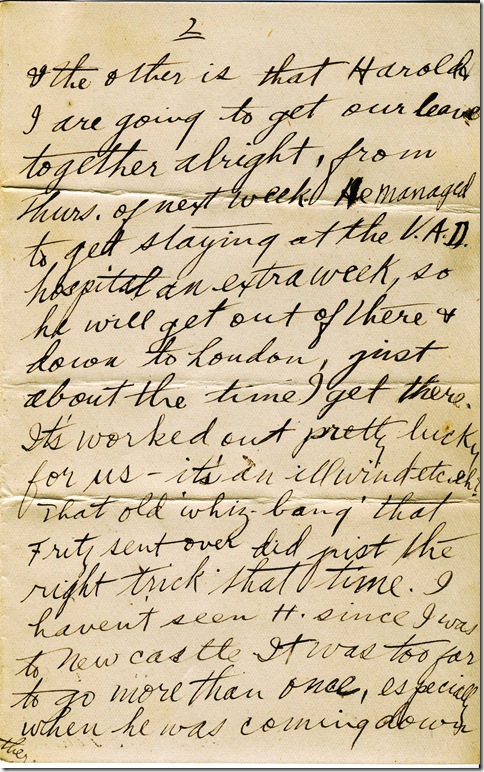 2
& the other is that Harold &
I are going to get our leave
together alright, from
Thurs. of next week. He managed
to get staying at the V.A.D.
hospital an extra week, so
he will get out of there &
down to London, just
about the time I get there.
It's worked out pretty lucky
for us - it's an ill wind etc. eh?
That old 'whiz-bang' that
Fritz sent over did just the
right trick that time. I
haven't seen H. since I was
to New castle. It was too far
to go more than once, especially
when he was coming down
ther.